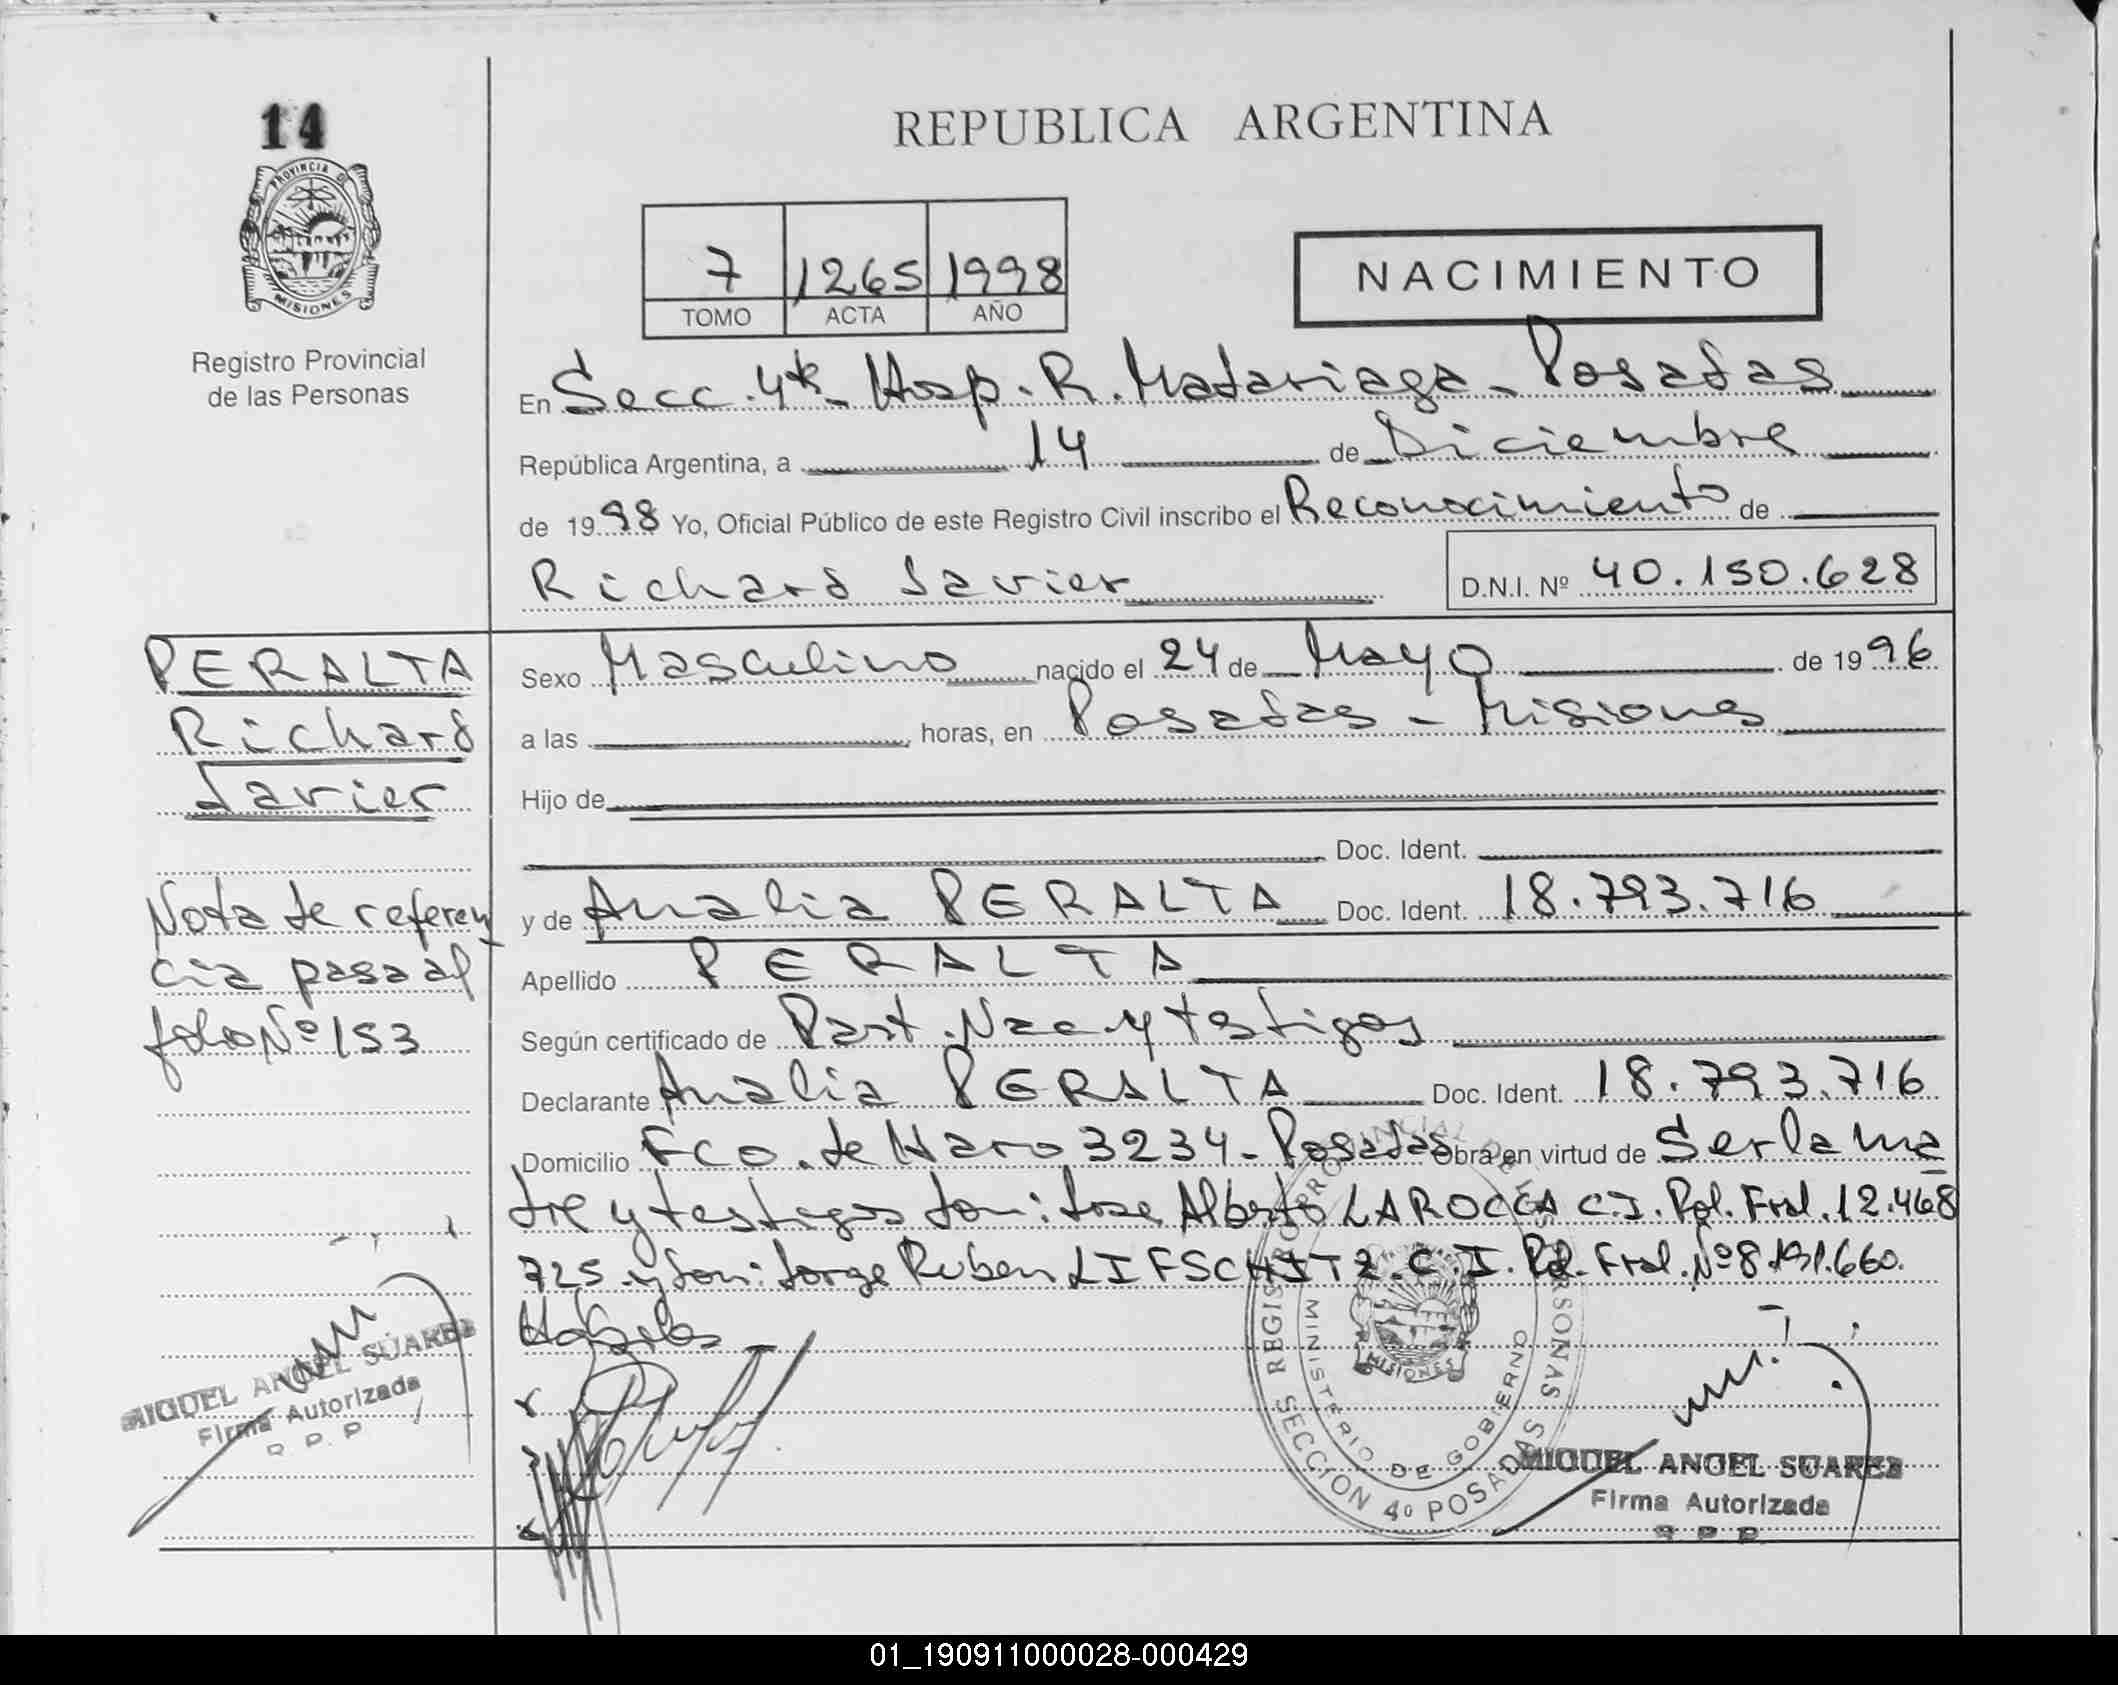 14
PROVINCIA DE
MISIONES
Registro Provincial
de las Personas
REPUBLICA ARGENTINA
7 1265 1998
TOMO ACTA AÑO
NACIMIENTO
En Secc. 4ta Hosp. R. Madariaga - Posadas
República Argentina, a 14 de Diciembre
de 1998 Yo, Oficial Público de este Registro Civil inscribo el Reconocimiento de
Richard Javier D.N.I. Nº 40.150.628
PERALTA
Richard
Javier
Sexo Masculino nacido el 24 de Mayo de 1996
a las horas, en Posadas - Misiones
Hijo de
Doc. Ident.
y de Analia PERALTA Doc. Ident. 18.793.716
Apellido PERALTA
Según certificado de Part. Nac y testigos
Declarante Analia PERALTA Doc. Ident. 18.793.716
Domicilio Fco. de Haro 3234 - Posadas Obra en virtud de Ser la ma
dre y testigos don: Jose Alberto LAROCCA C.I. Pol. Fral. 12.468
725 y don: Jorge Ruben LIFSCHITZ. C.I. Pol. Fral. Nº 8.191.660.
Habiles
Nota de referen
cia pasa al
folio Nº 153
MIGUEL ANGEL SUAREZ
Firma Autorizada
R. P. P.
REGISTRO PROVINCIAL DE LAS PERSONAS
MINISTERIO DE GOBIERNO
MISIONES
SECCION 4º POSADAS
MIGUEL ANGEL SUAREZ
Firma Autorizada
R. P. P.
01_190911000028-000429